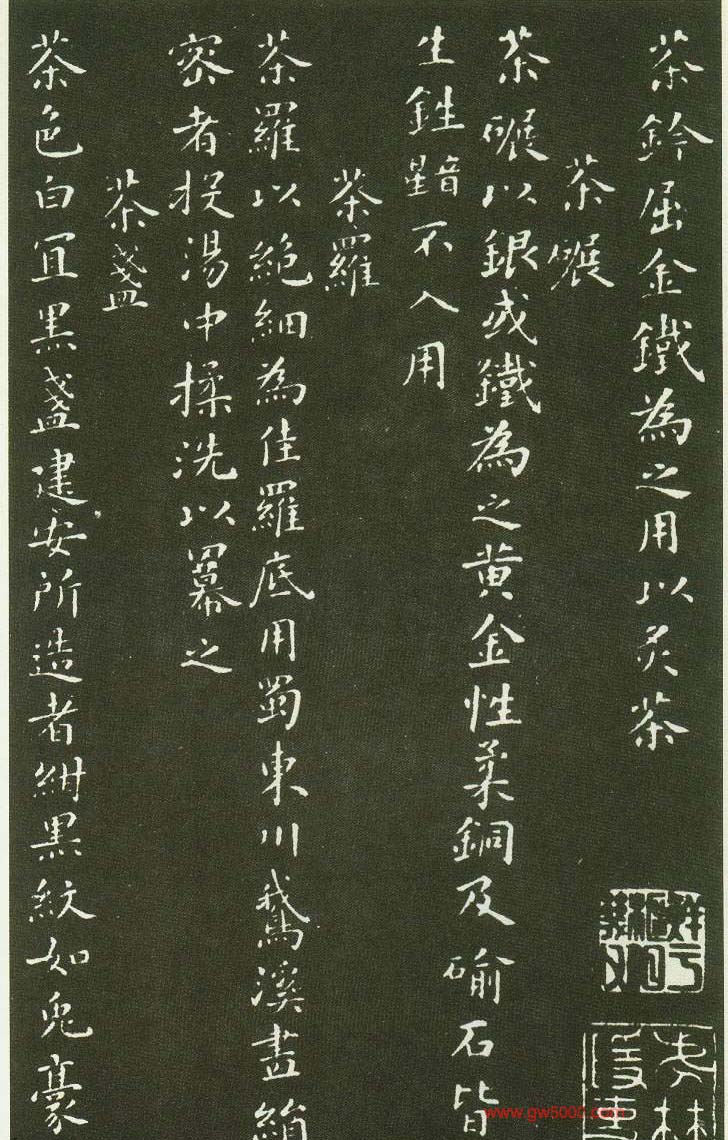 茶鈐屈金鐵為之用以炙茶
茶碾
茶碾以銀或鐵為之黄金性柔銅及石皆
生鉎音星不入用
茶羅
茶羅以絶細為佳羅底用蜀東川鵝溪畫絹
密者投湯中揉洗以羃之
茶盞
茶色白宜黒盞建安所造者紺黒紋如兔豪
www.gw5000.com